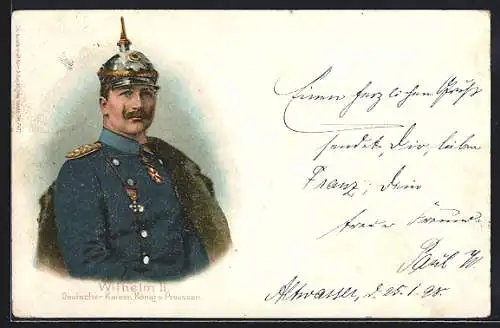 Wilhelm II.
Deutscher Kaiser, König v. Preussen.
Einen herzlichen Gruß
sendet Dir, lieber
Franz, Dein
treuer
Paul
Altwasser, d. 25.1.98.